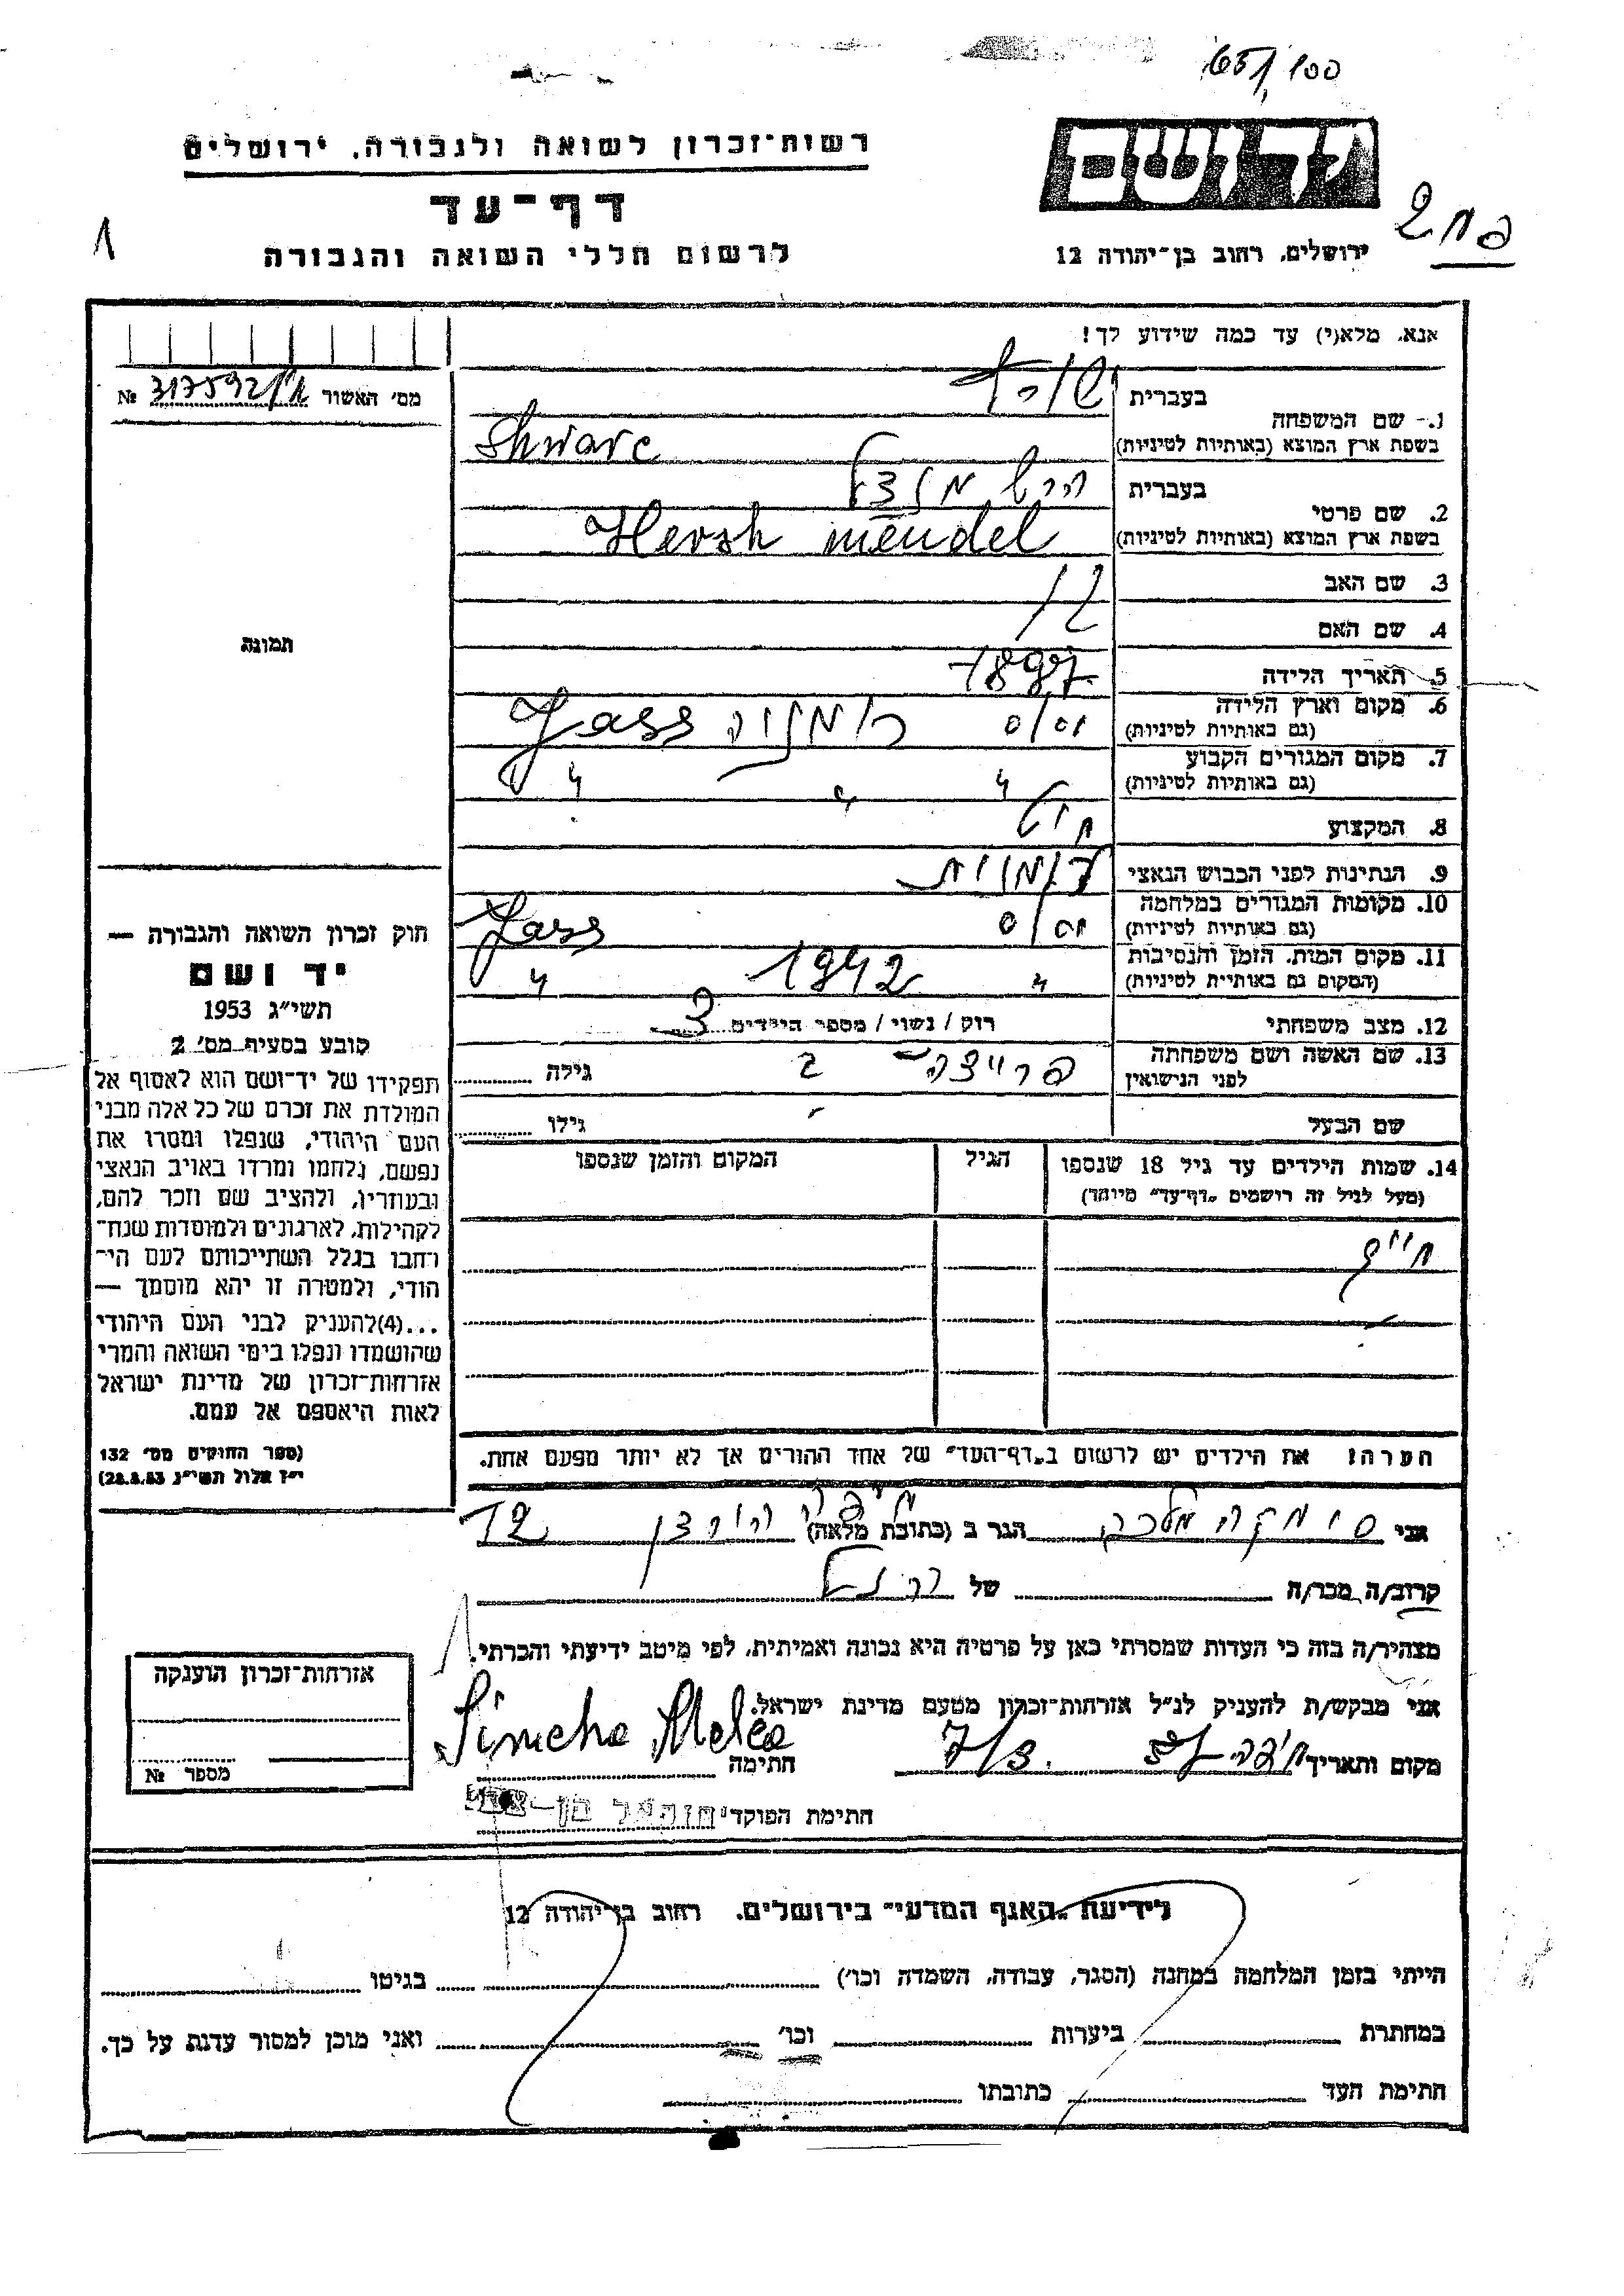 651/100
רשות־זכרון לשואה ולגבורה, ירושלים
ידושם
דף־עד
לרשום חללי השואה והגבורה
ירושלים, רחוב בן־יהודה 12
אנא, מלא(י) עד כמה שידוע לך!
מס' האשור № 317592
1. שם המשפחה
בעברית שורץ
בשפת ארץ המוצא (באותיות לטיניות) Shwarc
2. שם פרטי
בעברית הרש מנדל
בשפת ארץ המוצא (באותיות לטיניות) Hersh mendel
3. שם האב
4. שם האם
5. תאריך הלידה 1897
6. מקום וארץ הלידה
(גם באותיות לטיניות) רומניה Jass
7. מקום המגורים הקבוע
(גם באותיות לטיניות) " " "
8. המקצוע
9. הנתינות לפני הכבוש הנאצי רומנית
10. מקומות המגורים במלחמה
(גם באותיות לטיניות) Jass
11. מקום המות, הזמן והנסיבות
(המקום גם באותיות לטיניות) " 1942 "
12. מצב משפחתי רוק / נשוי / מספר הילדים 3
13. שם האשה ושם משפחתה
לפני הנישואין גילה
שם הבעל גילו
14. שמות הילדים עד גיל 18 שנספו
(מעל לגיל זה רושמים „דף־עד" מיוחד)
הגיל
המקום והזמן שנספו
הערה! את הילדים יש לרשום ב„דף־העד" של אחד ההורים אך לא יותר מפעם אחת.
תמונה
חוק זכרון השואה והגבורה —
יד ושם
תשי"ג 1953
קובע בסעיף מס' 2
תפקידו של יד־ושם הוא לאסוף אל
המולדת את זכרם של כל אלה מבני
העם היהודי, שנפלו ומסרו את
נפשם, נלחמו ומרדו באויב הנאצי
ובעוזריו, ולהציב שם וזכר להם,
לקהילות, לארגונים ולמוסדות שנח־
רחבו בגלל השתייכותם לעם הי־
הודי, ולמטרה זו יהא מוסמך —
...(4)להעניק לבני העם היהודי
שהושמדו ונפלו בימי השואה והמרי
אזרחות־זכרון של מדינת ישראל
לאות היאספם אל עמם.
(ספר החוקים מס' 132
י"ז אלול תשי"ג 28.8.53)
אני הגר ב (כתובת מלאה) 12
קרוב/ה מכר/ה של
מצהיר/ה בזה כי העדות שמסרתי כאן על פרטיה היא נכונה ואמיתית, לפי מיטב ידיעתי והכרתי.
אני מבקש/ת להעניק לנ"ל אזרחות־זכרון מטעם מדינת ישראל.
מקום ותאריך 7/3. חתימה Simcha Malca
חתימת הפוקד
אזרחות־זכרון הוענקה
מספר №
לידיעת „האגף המדעי" בירושלים, רחוב בן־יהודה 12
הייתי בזמן המלחמה במחנה (הסגר, עבודה, השמדה וכו') בגיטו
במחתרת ביערות וכו' ואני מוכן למסור עדות על כך.
חתימת העד כתובתו